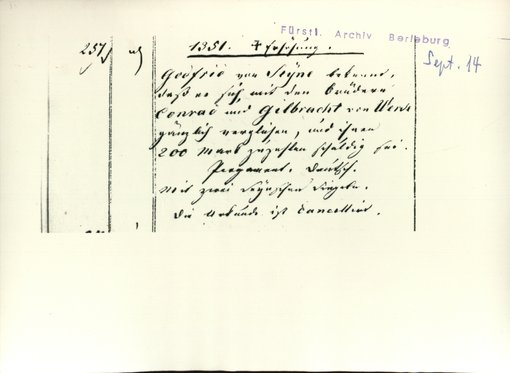 Fürstl. Archiv Berleburg
Sept. 14
257 1351. ♰ Erhöhung.
Godfrid von Seyne bekennt,
daß er sich mit den Brüdern
Conrad und Gilbracht von
gänzlich verglichen, und ihnen
200 Mark zuzahlen schuldig sei.
Pergament. Deutsch.
Mit zwei Seynischen Siegeln.
Die Urkunde ist cancellirt.